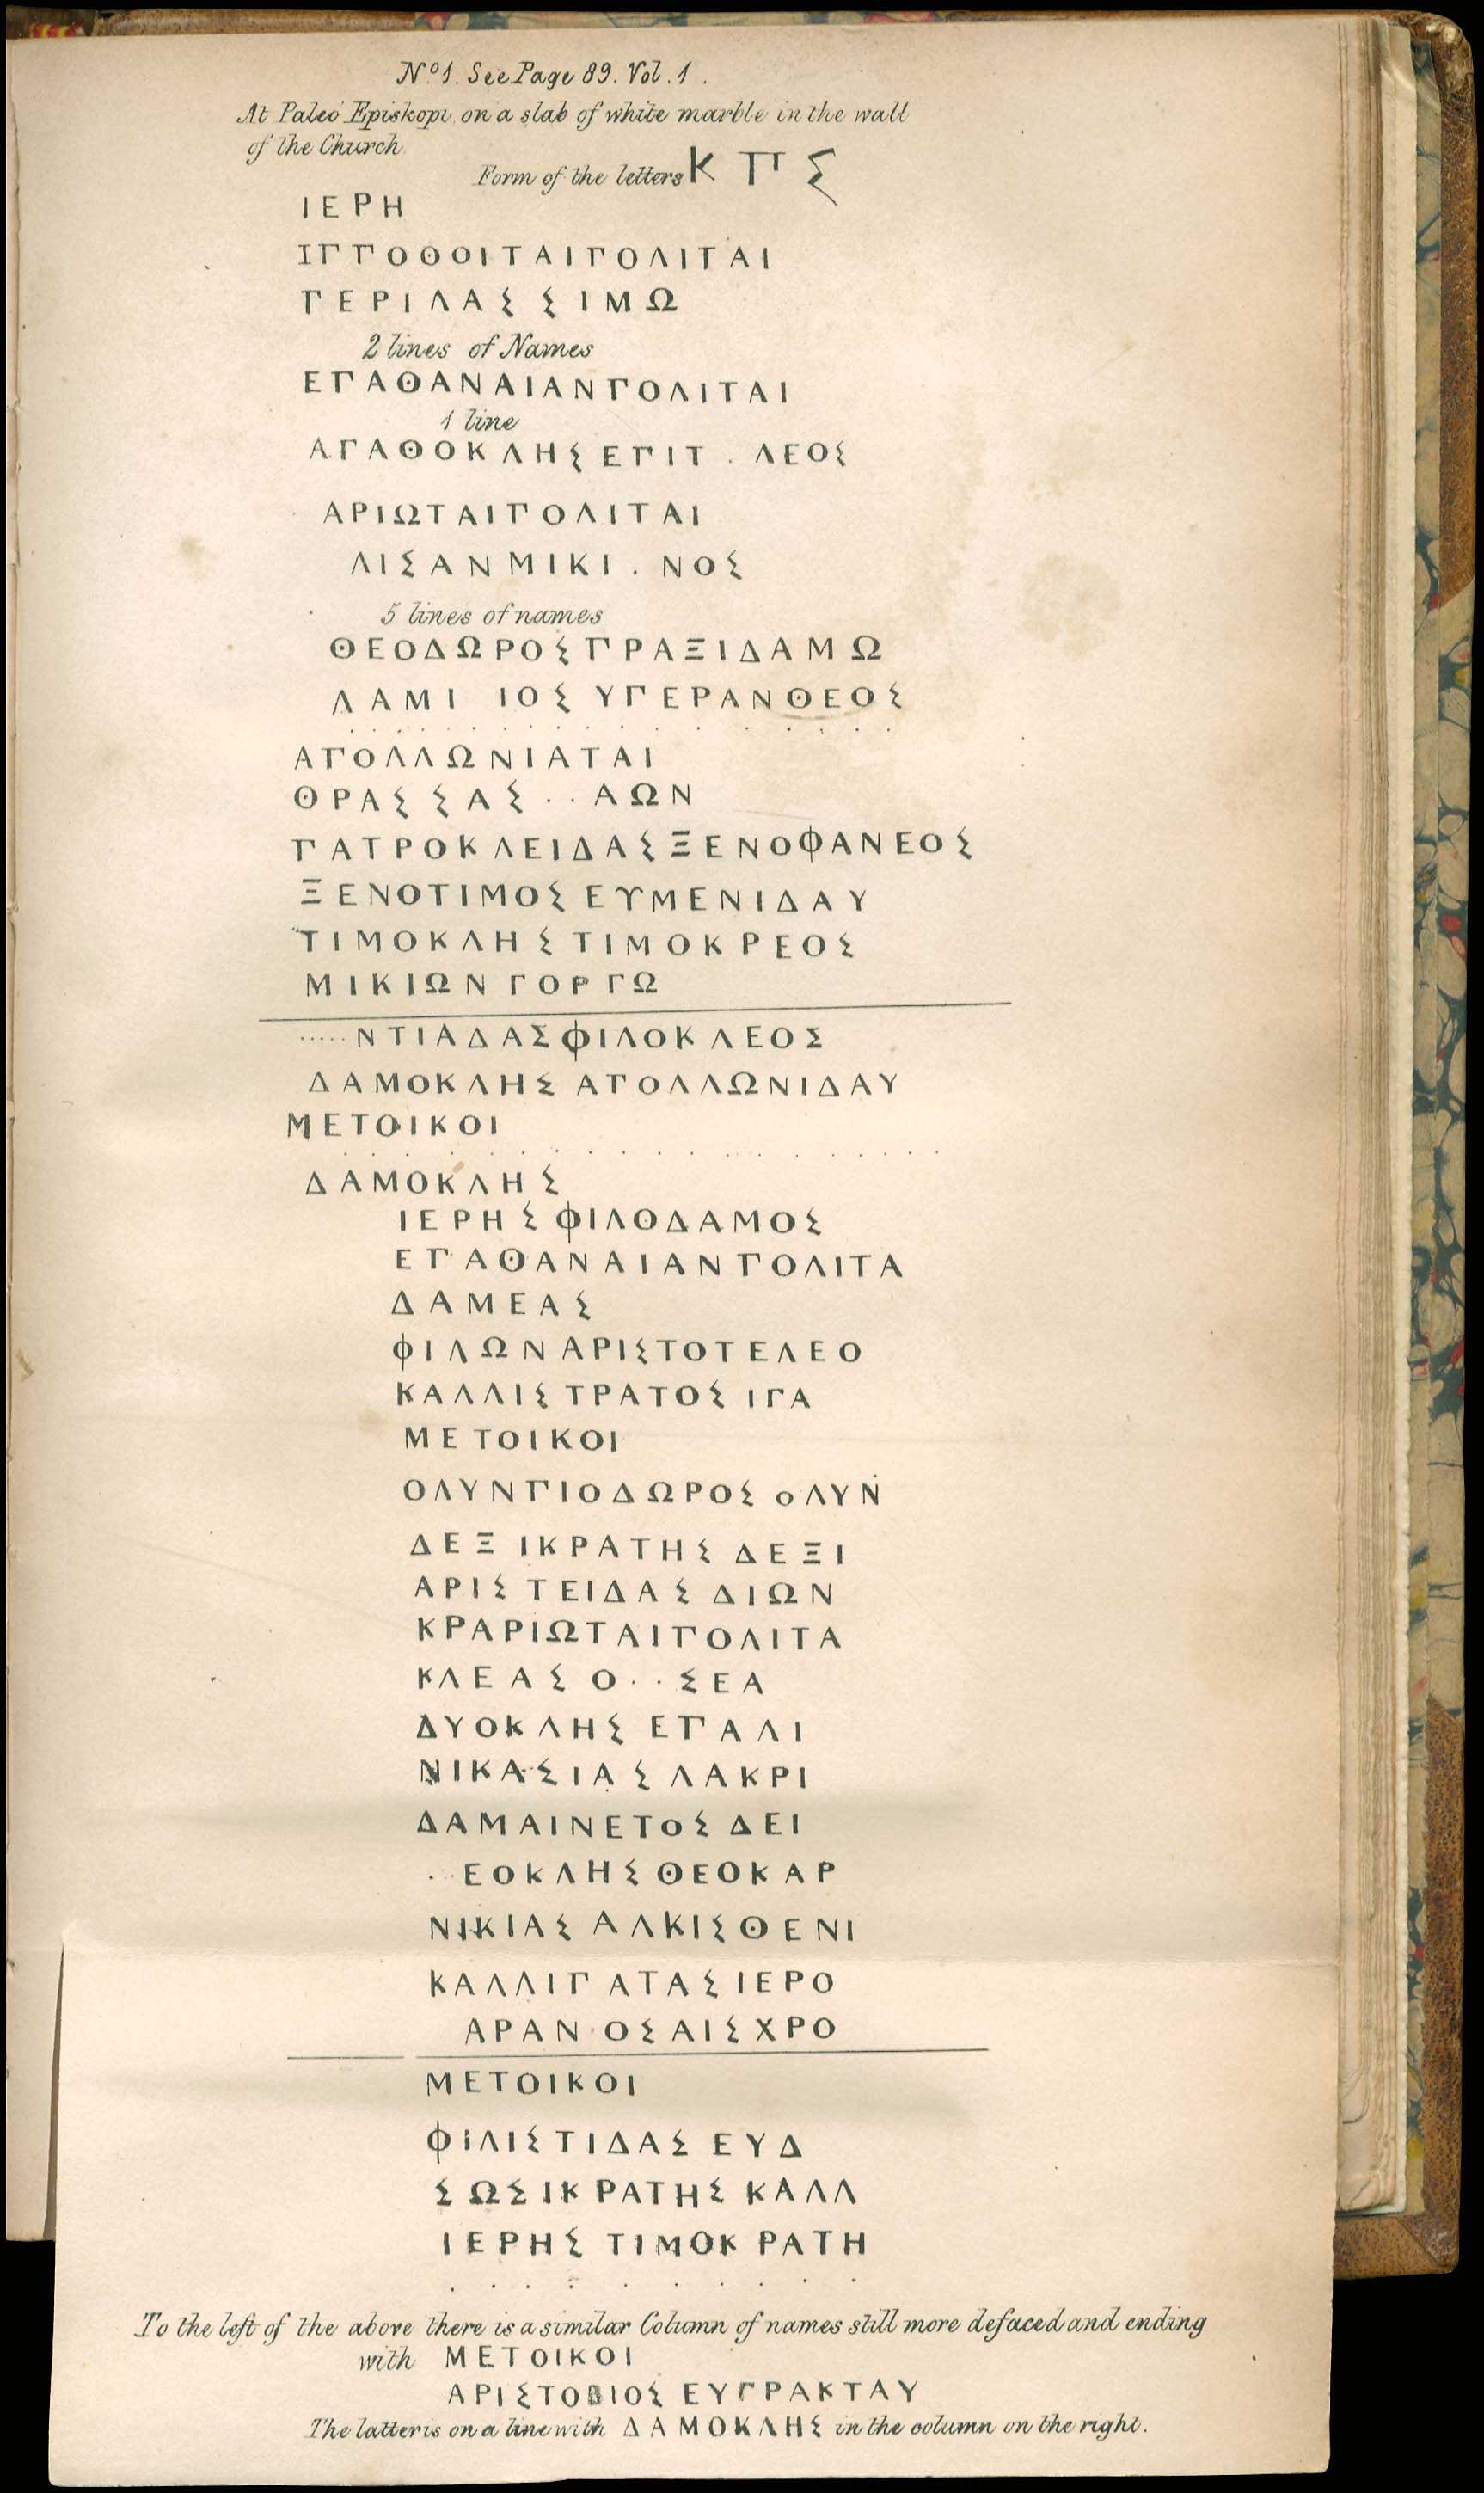 Nº1. See Page 89. Vol. 1.
At Paleó Episkopi on a slab of white marble in the wall
of the Church
Form of the letters Κ Π Σ
ΙΕΡΗ
ΙΠΠΟΘΟΙΤΑΙΠΟΛΙΤΑΙ
ΠΕΡΙΛΑΣ ΣΙΜΩ
2 lines of Names
ΕΠΑΘΑΝΑΙΑΝΠΟΛΙΤΑΙ
1 line
ΑΓΑΘΟΚΛΗΣΕΠΙΤ . ΛΕΟΣ
ΑΡΙΩΤΑΙΠΟΛΙΤΑΙ
ΛΙΣΑΝΜΙΚΙ . ΝΟΣ
5 lines of names
ΘΕΟΔΩΡΟΣΠΡΑΞΙΔΑΜΩ
ΛΑΜΙ ΙΟΣ ΥΠΕΡΑΝΘΕΟΣ
. . . . . . . . . . . . . . . .
ΑΠΟΛΛΩΝΙΑΤΑΙ
ΘΡΑΣΣΑΣ . . ΑΩΝ
ΠΑΤΡΟΚΛΕΙΔΑΣΞΕΝΟΦΑΝΕΟΣ
ΞΕΝΟΤΙΜΟΣΕΥΜΕΝΙΔΑΥ
ΤΙΜΟΚΛΗΣΤΙΜΟΚΡΕΟΣ
ΜΙΚΙΩΝΓΟΡΓΩ
.....ΝΤΙΑΔΑΣΦΙΛΟΚΛΕΟΣ
ΔΑΜΟΚΛΗΣ ΑΠΟΛΛΩΝΙΔΑΥ
ΜΕΤΟΙΚΟΙ
. . . . . . . . . . . . . . . .
ΔΑΜΟΚΛΗΣ
ΙΕΡΗΣΦΙΛΟΔΑΜΟΣ
ΕΠΑΘΑΝΑΙΑΝΠΟΛΙΤΑ
ΔΑΜΕΑΣ
ΦΙΛΩΝΑΡΙΣΤΟΤΕΛΕΟ
ΚΑΛΛΙΣΤΡΑΤΟΣ ΙΓΑ
ΜΕΤΟΙΚΟΙ
ΟΛΥΝΠΙΟΔΩΡΟΣ ΟΛΥΝ
ΔΕΞΙΚΡΑΤΗΣ ΔΕΞΙ
ΑΡΙΣΤΕΙΔΑΣ ΔΙΩΝ
ΚΡΑΡΙΩΤΑΙΠΟΛΙΤΑ
ΚΛΕΑΣ Ο . . ΣΕΑ
ΔΥΟΚΛΗΣ ΕΠΑΛΙ
ΝΙΚΑΣΙΑΣ ΛΑΚΡΙ
ΔΑΜΑΙΝΕΤΟΣ ΔΕΙ
. . ΕΟΚΛΗΣΘΕΟΚΑΡ
ΝΙΚΙΑΣ ΑΛΚΙΣΘΕΝΙ
ΚΑΛΛΙΠΑΤΑΣΙΕΡΟ
ΑΡΑΝ . ΟΣΑΙΣΧΡΟ
ΜΕΤΟΙΚΟΙ
ΦΙΛΙΣΤΙΔΑΣ ΕΥΔ
ΣΩΣΙΚΡΑΤΗΣ ΚΑΛΛ
ΙΕΡΗΣ ΤΙΜΟΚΡΑΤΗ
. . . . . . . . .
To the left of the above there is a similar Column of names still more defaced and ending
with ΜΕΤΟΙΚΟΙ
ΑΡΙΣΤΟΒΙΟΣ ΕΥΠΡΑΚΤΑΥ
The latter is on a line with ΔΑΜΟΚΛΗΣ in the column on the right.